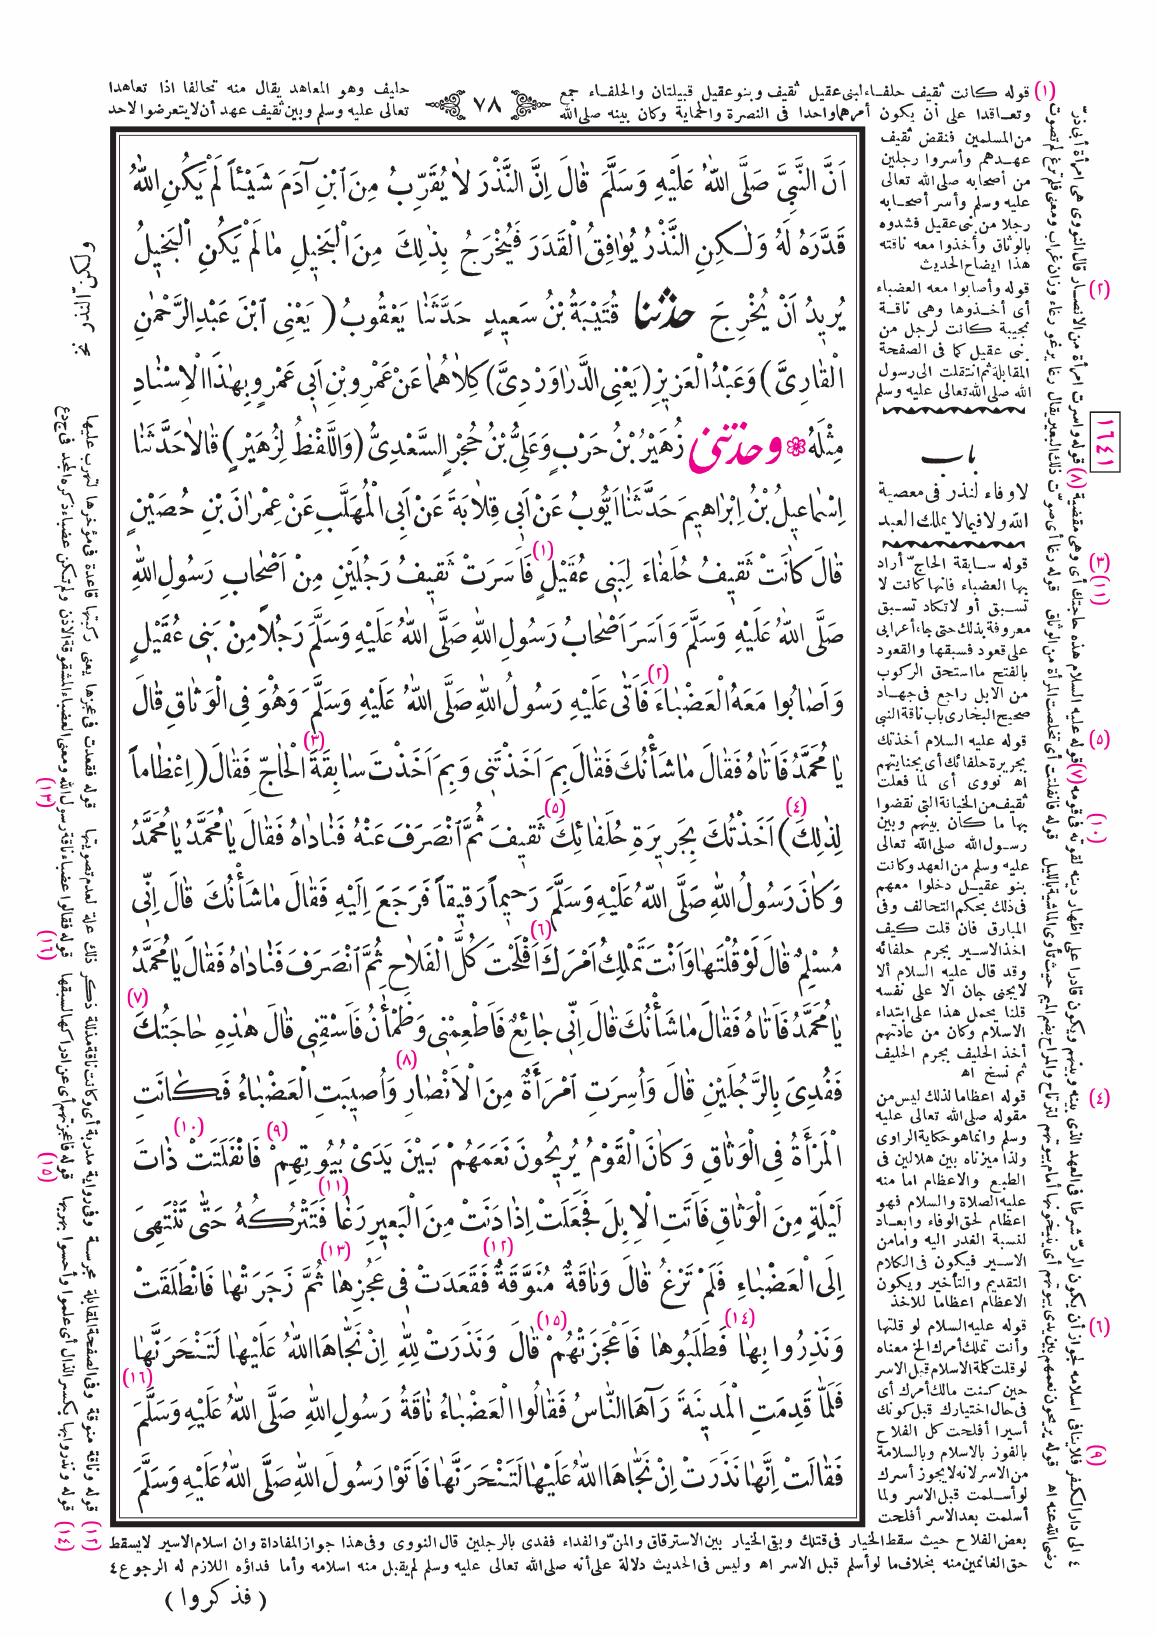 ﴿ ٧٨ ﴾
اَنَّ النَّبِىَّ صَلَّى اللهُ عَلَيْهِ وَسَلَّمَ قَالَ اِنَّ النَّذْرَ لَا يُقَرِّبُ مِنَ ابْنِ آدَمَ شَيْئًا لَمْ يَكُنِ اللهُ
قَدَّرَهُ لَهُ وَلٰكِنِ النَّذْرُ يُوَافِقُ الْقَدَرَ فَيُخْرَجُ بِذٰلِكَ مِنَ الْبَخِيلِ مَا لَمْ يَكُنِ الْبَخِيلُ
يُرِيدُ اَنْ يُخْرِجَ حدثنا قُتَيْبَةُ بْنُ سَعِيدٍ حَدَّثَنَا يَعْقُوبُ (يَعْنِى ابْنَ عَبْدِ الرَّحْمٰنِ
الْقَارِىَّ) وَعَبْدُ الْعَزِيزِ (يَعْنِى الدَّرَاوَرْدِىَّ) كِلَاهُمَا عَنْ عَمْرِو بْنِ اَبِى عَمْرٍو بِهٰذَا الْاِسْنَادِ
مِثْلَهُ ❁ وحدثنى زُهَيْرُ بْنُ حَرْبٍ وَعَلِىُّ بْنُ حُجْرٍ السَّعْدِىُّ (وَاللَّفْظُ لِزُهَيْرٍ) قَالَا حَدَّثَنَا
اِسْمَاعِيلُ بْنُ اِبْرَاهِيمَ حَدَّثَنَا اَيُّوبُ عَنْ اَبِى قِلَابَةَ عَنْ اَبِى الْمُهَلَّبِ عَنْ عِمْرَانَ بْنِ حُصَيْنٍ
قَالَ كَانَتْ ثَقِيفُ حُلَفَاءَ لِبَنِى عُقَيْلٍ (١) فَاَسَرَتْ ثَقِيفُ رَجُلَيْنِ مِنْ اَصْحَابِ رَسُولِ اللهِ
صَلَّى اللهُ عَلَيْهِ وَسَلَّمَ وَاَسَرَ اَصْحَابُ رَسُولِ اللهِ صَلَّى اللهُ عَلَيْهِ وَسَلَّمَ رَجُلًا مِنْ بَنِى عُقَيْلٍ
وَاَصَابُوا مَعَهُ الْعَضْبَاءَ (٢) فَاَتَى عَلَيْهِ رَسُولُ اللهِ صَلَّى اللهُ عَلَيْهِ وَسَلَّمَ وَهُوَ فِى الْوَثَاقِ قَالَ
يَا مُحَمَّدُ فَاَتَاهُ فَقَالَ مَا شَأْنُكَ فَقَالَ بِمَ اَخَذْتَنِى وَبِمَ اَخَذْتَ سَابِقَةَ (٣) الْحَاجِّ فَقَالَ (اِعْظَامًا
لِذٰلِكَ) (٤) اَخَذْتُكَ بِجَرِيرَةِ حُلَفَائِكَ (٥) ثَقِيفَ ثُمَّ انْصَرَفَ عَنْهُ فَنَادَاهُ فَقَالَ يَا مُحَمَّدُ يَا مُحَمَّدُ
وَكَانَ رَسُولُ اللهِ صَلَّى اللهُ عَلَيْهِ وَسَلَّمَ رَحِيمًا رَقِيقًا فَرَجَعَ اِلَيْهِ فَقَالَ مَا شَأْنُكَ قَالَ اِنِّى
مُسْلِمٌ قَالَ لَوْ قُلْتَهَا وَاَنْتَ تَمْلِكُ اَمْرَكَ (٦) اَفْلَحْتَ كُلَّ الْفَلَاحِ ثُمَّ انْصَرَفَ فَنَادَاهُ فَقَالَ يَا مُحَمَّدُ
يَا مُحَمَّدُ فَاَتَاهُ فَقَالَ مَا شَأْنُكَ قَالَ اِنِّى جَائِعٌ فَاَطْعِمْنِى وَظَمْآنُ فَاسْقِنِى قَالَ هٰذِهِ حَاجَتُكَ (٧)
فَفُدِىَ بِالرَّجُلَيْنِ قَالَ وَاُسِرَتِ امْرَأَةٌ مِنَ الْاَنْصَارِ (٨) وَاُصِيبَتِ الْعَضْبَاءُ فَكَانَتِ
الْمَرْأَةُ فِى الْوَثَاقِ وَكَانَ الْقَوْمُ يُرِيحُونَ نَعَمَهُمْ بَيْنَ يَدَىْ بُيُوتِهِمْ (٩) فَانْفَلَتَتْ (١٠) ذَاتَ
لَيْلَةٍ مِنَ الْوَثَاقِ فَاَتَتِ الْاِبِلَ فَجَعَلَتْ اِذَا دَنَتْ مِنَ الْبَعِيرِ رَغَا (١١) فَتَتْرُكُهُ حَتَّى تَنْتَهِىَ
اِلَى الْعَضْبَاءِ فَلَمْ تَرْغُ قَالَ وَنَاقَةٌ مُنَوَّقَةٌ (١٢) فَقَعَدَتْ فِى عَجُزِهَا (١٣) ثُمَّ زَجَرَتْهَا فَانْطَلَقَتْ
وَنَذِرُوا بِهَا (١٤) فَطَلَبُوهَا فَاَعْجَزَتْهُمْ (١٥) قَالَ وَنَذَرَتْ لِلّٰهِ اِنْ نَجَّاهَا اللهُ عَلَيْهَا لَتَنْحَرَنَّهَا
فَلَمَّا قَدِمَتِ الْمَدِينَةَ رَآهَا النَّاسُ فَقَالُوا الْعَضْبَاءُ نَاقَةُ رَسُولِ اللهِ صَلَّى اللهُ عَلَيْهِ وَسَلَّمَ (١٦)
فَقَالَتْ اِنَّهَا نَذَرَتْ اِنْ نَجَّاهَا اللهُ عَلَيْهَا لَتَنْحَرَنَّهَا فَاَتَوْا رَسُولَ اللهِ صَلَّى اللهُ عَلَيْهِ وَسَلَّمَ
١٦٤١
باب
لا وفاء لنذر فى معصية
الله ولا فيما لا يملك العبد
(١) قوله كانت ثقيف حلفاء لبنى عقيل ثقيف وبنو عقيل قبيلتان والحلفاء جمع
حليف وهو المعاهد يقال منه تحالفا اذا تعاهدا
وتعاقدا على أن يكون أمرهما واحدا فى النصرة والحماية وكان بينه صلى الله
تعالى عليه وسلم وبين ثقيف عهد أن لا يتعرضوا لاحد
من المسلمين فنقض ثقيف
عهدهم وأسروا رجلين
من أصحابه صلى الله تعالى
عليه وسلم وأسر أصحابه
رجلا من بنى عقيل فشدوه
بالوثاق وأخذوا معه ناقته
هذا ايضاح الحديث
(٢) قوله وأصابوا معه العضباء
أى أخذوها وهى ناقة
نجيبة كانت لرجل من
بنى عقيل كما فى الصفحة
المقابلة ثم انتقلت الى رسول
الله صلى الله تعالى عليه وسلم
(٣) قوله سابقة الحاجّ أراد
بها العضباء فانها كانت لا
تسبق أو لا تكاد تسبق
معروفة بذلك حتى جاء أعرابى
على قعود فسبقها والقعود
بالفتح ما استحق الركوب
من الابل راجع فى جهاد
صحيح البخارى باب ناقة النبى
(٥) قوله عليه السلام أخذتك
بجريرة حلفائك أى بجنايتهم
اه نووى أى لما فعلت
ثقيف من الخيانة التى نقضوا
بها ما كان بينهم وبين
رسول الله صلى الله تعالى
عليه وسلم من العهد وكانت
بنو عقيل دخلوا معهم
فى ذلك بحكم التحالف وفى
المبارق فان قلت كيف
اخذ الاسير بجرم حلفائه
وقد قال عليه السلام ألا
لا يجنى جان الا على نفسه
قلنا يحمل هذا على ابتداء
الاسلام وكان من عادتهم
أخذ الحليف بجرم الحليف
ثم نسخ اه
(٤) قوله اعظاما لذلك ليس من
مقوله صلى الله تعالى عليه
وسلم وانما هو حكاية الراوى
ولذا ميزناه بين هلالين فى
الطبع والاعظام اما منه
عليه الصلاة والسلام فهو
اعظام لحق الوفاء وابعاد
لنسبة الغدر اليه واما من
الاسير فيكون فى الكلام
التقديم والتأخير ويكون
الاعظام اعظاما للاخذ
(٦) قوله عليه السلام لو قلتها
وأنت تملك أمرك الخ معناه
لو قلت كلة الاسلام قبل الاسر
حين كنت مالك أمرك أى
فى حال اختيارك قبل كونك
أسيرا أفلحت كل الفلاح
بالفوز بالاسلام وبالسلامة
من الاسر لانه لا يجوز أسرك
لو أسلمت قبل الاسر ولما
أسلمت بعد الاسر أفلحت
بعض الفلاح حيث سقط الخيار فى قتلك وبقى الخيار بين الاسترقاق والمنّ والفداء ففدى بالرجلين قال النووى وفى هذا جواز المفاداة وان اسلام الاسير لا يسقط
حق الغانمين منه بخلاف ما لو أسلم قبل الاسر اه وليس فى الحديث دلالة على أنه صلى الله تعالى عليه وسلم لم يقبل منه اسلامه وأما فداؤه اللازم له الرجوع ٤
( فذكروا )